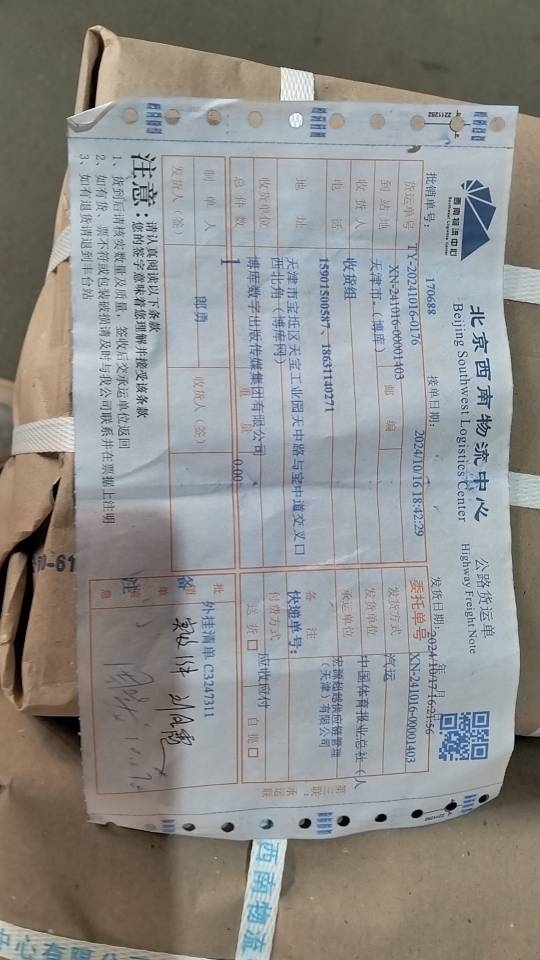 西南物流中心
Southwest Logistics Center
北京西南物流中心
Beijing Southwest Logistics Center
公路货运单
Highway Freight Note
批销单号: 170688 接单日期: 2024/10/16 18:42:29 发货日期: 年 月
2024/10/17 6:21:56
货运单号 TY-20241016-0176
XN-241016-00001403
委托单号 XN-241016-00001403
到站地 天津市.(博库) 邮编 发货方式 汽运
收货人 收货组 发货单位 中国体育报业总社(人
电话 15901500587、18631140271 承运单位 宏源超越供应链管理
(天津)有限公司
地址 天津市宝坻区天宝工业园天中路与宝中道交叉口
西北角(博库网)
备注 快递单号:
收货单位 博库数字出版传媒集团有限公司 付费方式 应收应付
总件数 1 重量 0.00 送货 自提
制单人 郎勇 收货人(签)
发货人(签)
批销单备注 外挂清单 C3247311
注意:
请认真阅读以下条款
您的签字意味着您理解并接受该条款
1、货到后请核实数量及质量,签收后交承运单位返回
2、如有货、票不符或包装破损请及时与我公司联系并在票据上注明
3、如有退货请退到丰台站
第三联:承运联
2211282
2211282
-61
西南物流
中心有限公